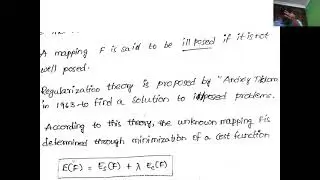 A mapping F is said to be ill posed if it is not
well posed.
Regularization theory is proposed by "Andrey
in 1963 to find a solution to illposed problems.
According to this theory, the unknown mapping F is
determined through minimization of a cost function
E(F) = Es(F) + λ Ec(F)